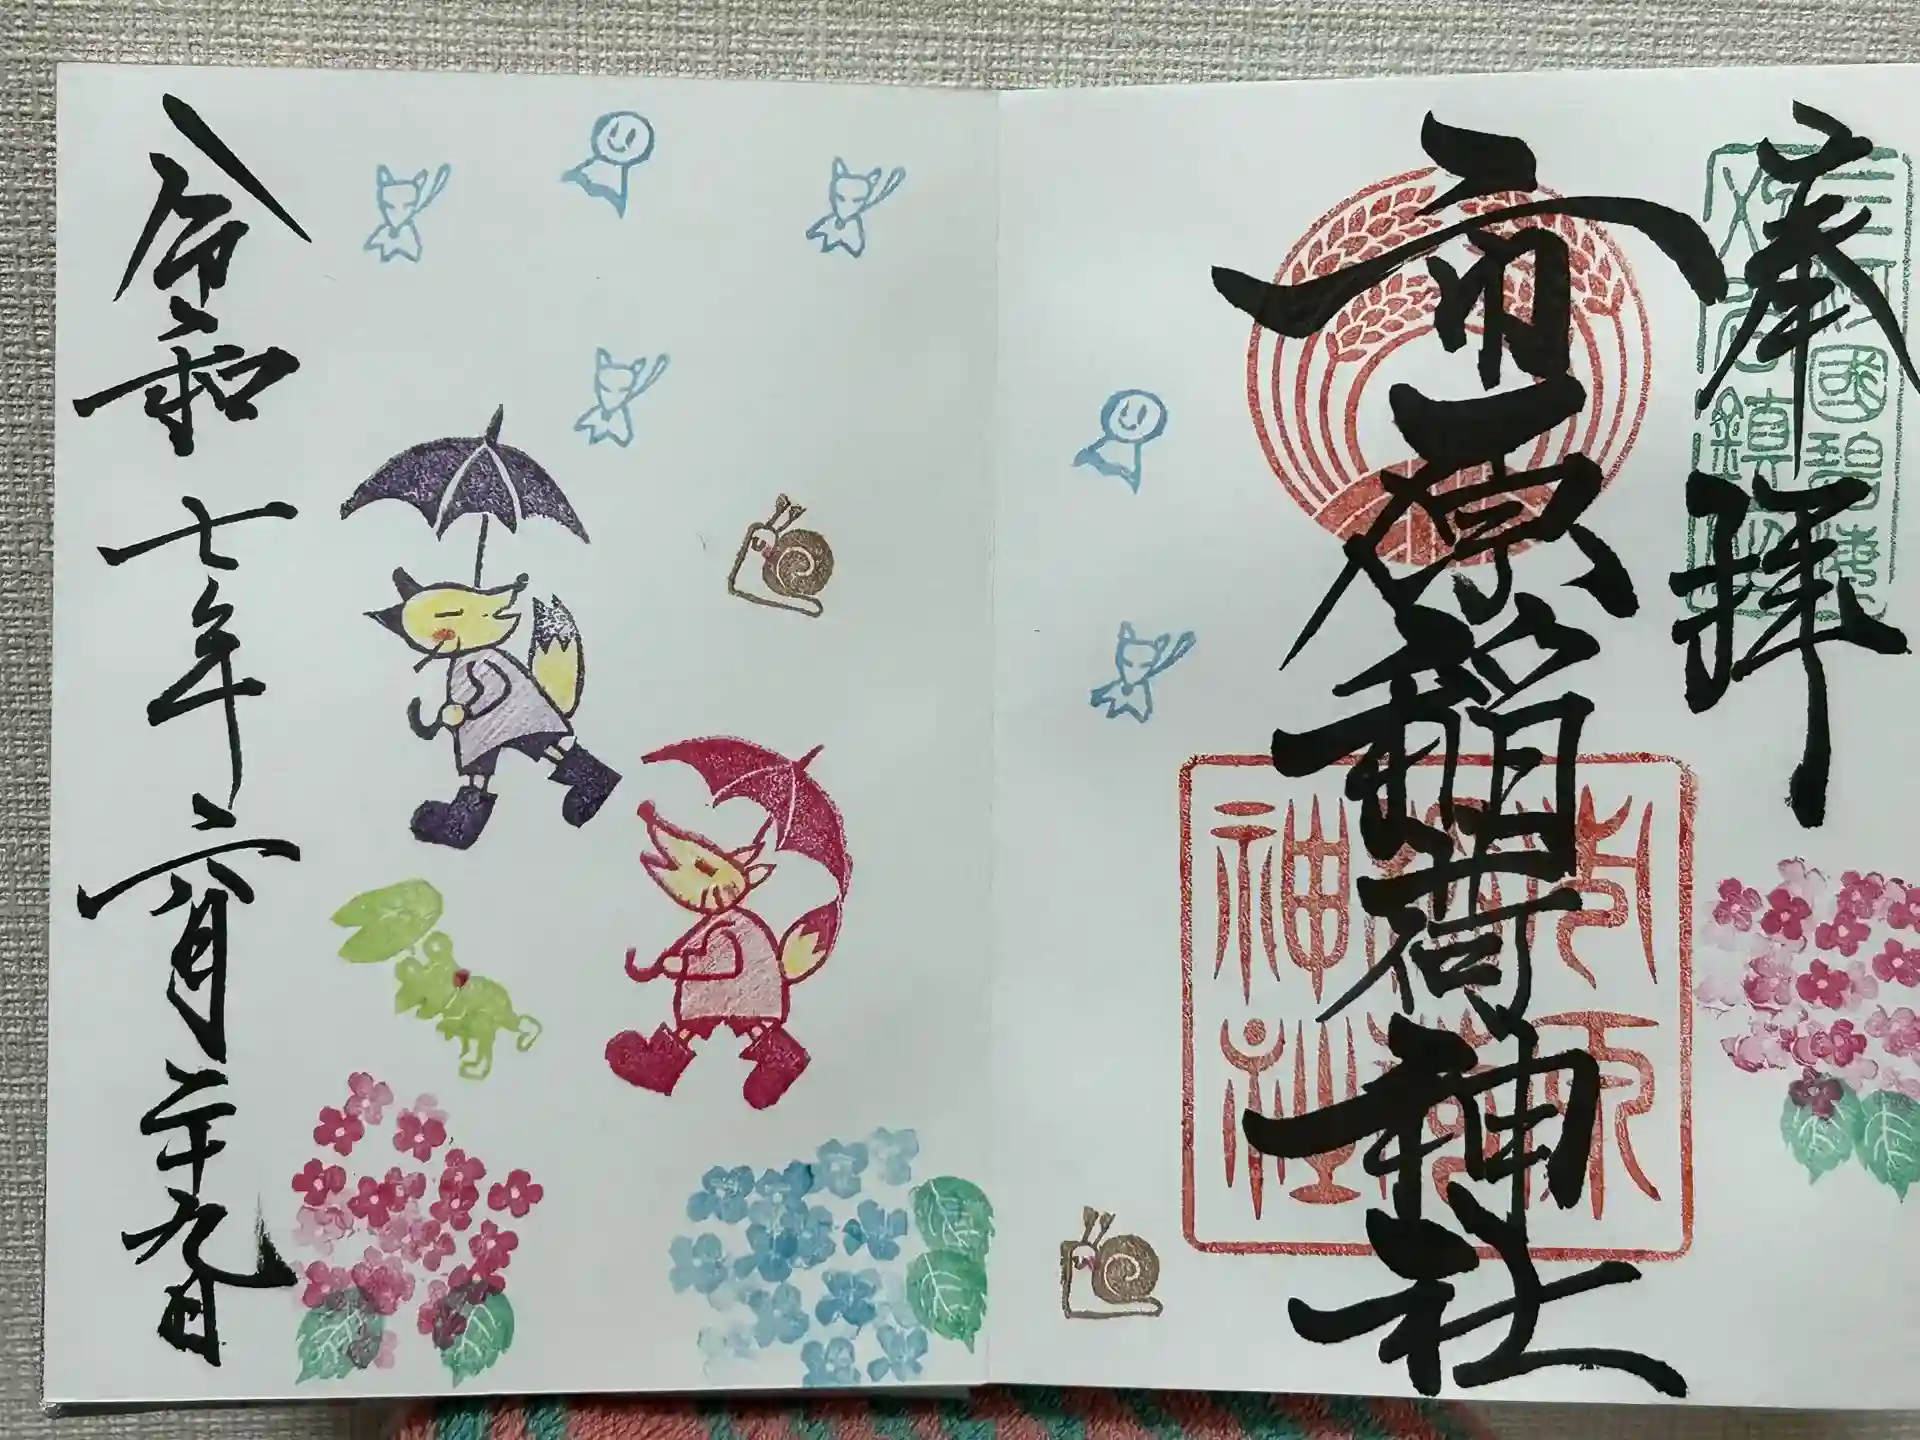 奉拝
市原稲荷神社
令和七年六月二十九日
市原
稲荷
神社